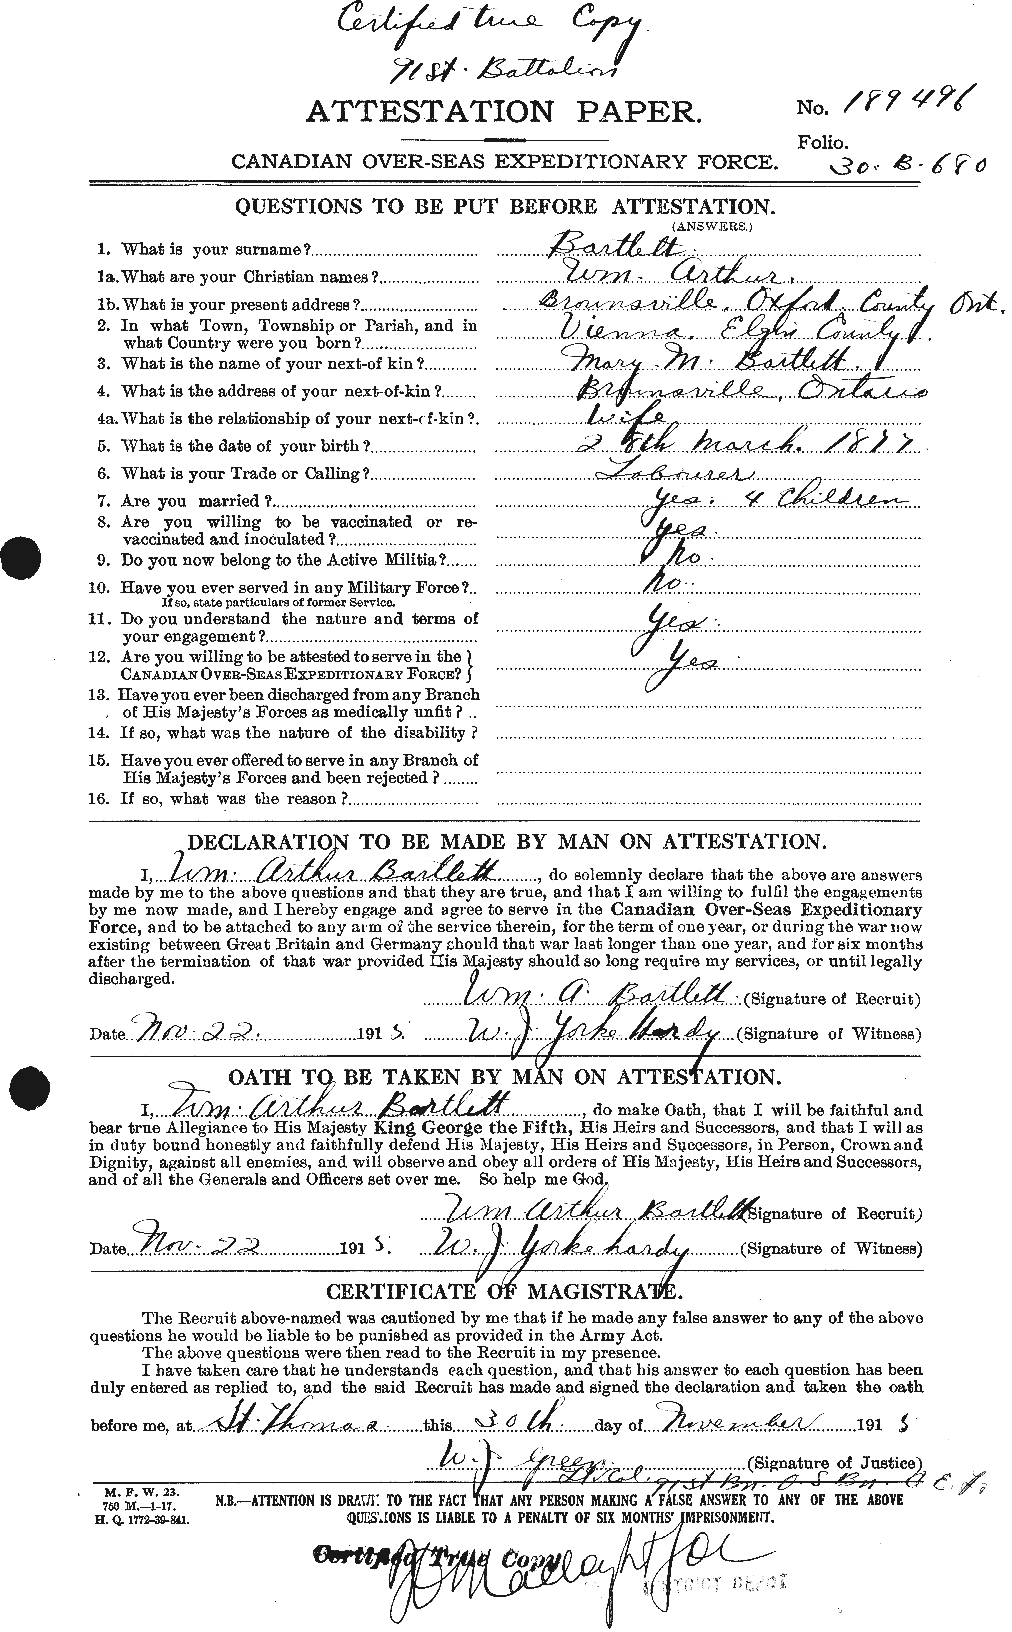 Certified true Copy
91st. Battalion
ATTESTATION PAPER.
No. 189496
Folio. 30-B-680
CANADIAN OVER-SEAS EXPEDITIONARY FORCE.
QUESTIONS TO BE PUT BEFORE ATTESTATION.
(ANSWERS.)
1. What is your surname? Bartlett.
1a. What are your Christian names? Wm. Arthur.
1b. What is your present address? Brownsville. Oxford County Ont.
2. In what Town, Township or Parish, and in
what Country were you born? Vienna. Elgin County.
3. What is the name of your next-of kin? Mary M. Bartlett.
4. What is the address of your next-of-kin? Brownsville, Ontario
4a. What is the relationship of your next-of-kin?. Wife
5. What is the date of your birth? 28th March. 1877
6. What is your Trade or Calling? Labourer
7. Are you married? yes. 4 Children
8. Are you willing to be vaccinated or re-
vaccinated and inoculated? yes.
9. Do you now belong to the Active Militia? no.
10. Have you ever served in any Military Force? no.
If so, state particulars of former Service.
11. Do you understand the nature and terms of
your engagement? Yes.
12. Are you willing to be attested to serve in the
CANADIAN OVER-SEAS EXPEDITIONARY FORCE? } Yes
13. Have you ever been discharged from any Branch
of His Majesty's Forces as medically unfit?
14. If so, what was the nature of the disability?
15. Have you ever offered to serve in any Branch of
His Majesty's Forces and been rejected?
16. If so, what was the reason?
DECLARATION TO BE MADE BY MAN ON ATTESTATION.
I, Wm. Arthur Bartlett, do solemnly declare that the above are answers
made by me to the above questions and that they are true, and that I am willing to fulfil the engagements
by me now made, and I hereby engage and agree to serve in the Canadian Over-Seas Expeditionary
Force, and to be attached to any arm of the service therein, for the term of one year, or during the war now
existing between Great Britain and Germany should that war last longer than one year, and for six months
after the termination of that war provided His Majesty should so long require my services, or until legally
discharged.
Wm. A. Bartlett (Signature of Recruit)
Date Nov. 22. 1915. W. J Yorke Hardy (Signature of Witness)
OATH TO BE TAKEN BY MAN ON ATTESTATION.
I, Wm. Arthur Bartlett, do make Oath, that I will be faithful and
bear true Allegiance to His Majesty King George the Fifth, His Heirs and Successors, and that I will as
in duty bound honestly and faithfully defend His Majesty, His Heirs and Successors, in Person, Crown and
Dignity, against all enemies, and will observe and obey all orders of His Majesty, His Heirs and Successors,
and of all the Generals and Officers set over me. So help me God.
Wm Arthur Bartlett (Signature of Recruit)
Date Nov. 22 1915. W. J Yorke hardy (Signature of Witness)
CERTIFICATE OF MAGISTRATE.
The Recruit above-named was cautioned by me that if he made any false answer to any of the above
questions he would be liable to be punished as provided in the Army Act.
The above questions were then read to the Recruit in my presence.
I have taken care that he understands each question, and that his answer to each question has been
duly entered as replied to, and the said Recruit has made and signed the declaration and taken the oath
before me, at St. Thomas this 30th. day of November 1915
W. J. Green (Signature of Justice)
Lt Col. 91st Bn. O S Bn. C. E. F.
M. F. W. 23.
750 M.-1-17.
H. Q. 1772-39-841.
N.B.—ATTENTION IS DRAWN TO THE FACT THAT ANY PERSON MAKING A FALSE ANSWER TO ANY OF THE ABOVE
QUESTIONS IS LIABLE TO A PENALTY OF SIX MONTHS' IMPRISONMENT.
Certified True Copy
DISTRICT DEPOT